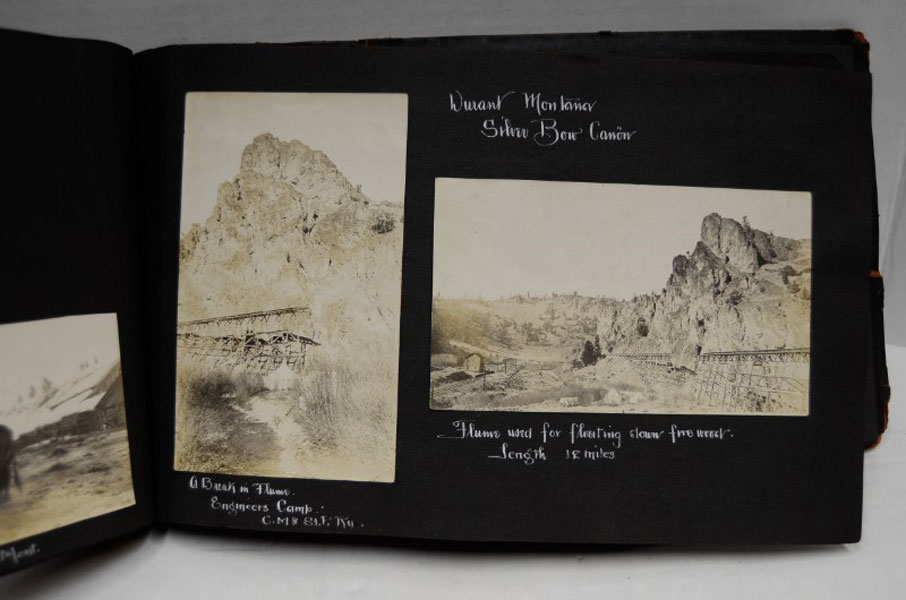 Durant Montana
Silver Bow Cañon
A Break in Flume.
Engineers Camp.
C. M. & St. P. Ry.
Flume used for floating down fire wood.
Length 12 miles